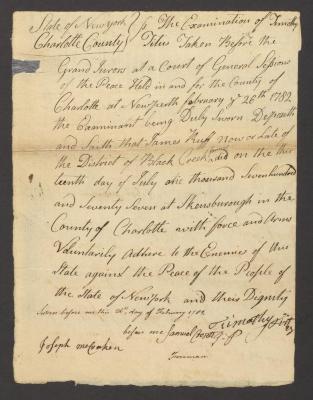 State of New york } ss The Examination of Timothy
Charlotte County } Titus Taken Before the
Grand Jurors at a Court of General Sessions
of the Peace Held in and for the County of
Charlotte at New perth february ye 26th 1782
the Examinant being Duly Sworn Deposeth
and Saith that James now or Late of
the District of Black Creek did on the thir
teenth day of July one thousand Sevenhundred
and Seventy Seven at Skensborough in the
County of Charlotte with force and Arms
Voluntarily Adhere to the Enemies of this
State against the Peace of the People of
the State of New York and their Dignity
Sworn before me this 26th day of February 1782
Timothy Titus
before me Samuel
Joseph McCracken
Foreman